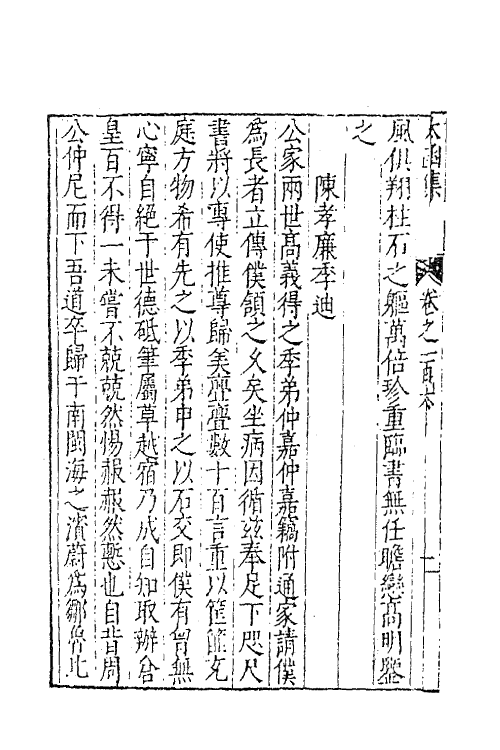 太函集 卷之一百六 十一
風俱翔柱石之軀萬倍珍重臨書無任瞻戀髙明鑒
之
陳孝廉季迪
公家兩世髙義得之季弟仲嘉仲嘉竊附通家請僕
為長者立傳僕頷之久矣坐病因循兹奉足下咫尺
書將以專使推尊歸美亹亹數十百言重以筐篚充
庭方物希有先之以季弟申之以石交即僕有胷無
心寧自絕于世德砥筆屬草越宿乃成自知取辦倉
皇百不得一未嘗不兢兢然惕赧赧然慙也自昔周
公仲尼而下吾道卒歸于南閩海之濱蔚為鄒魯比